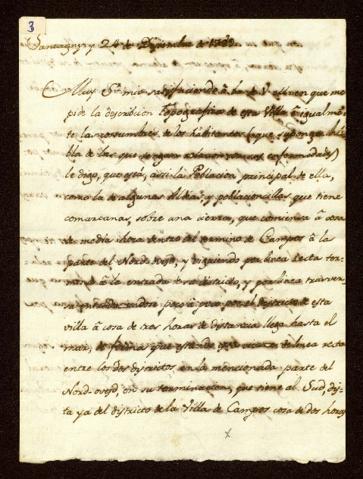 3
Santagny y 24 de Diziembre de 1789.
Muy Sr. mio satisfaciendo à la de V. en que me
pide la descripcion Topografica de esta Villa è igualmen-
te las costumbres de los habitantes (que supongo ha-
bla de las que
le digo, que está, assi la Poblacion principal de ella,
como la de algunas Aldeas, y poblacioncillas que tiene
comarcanas, sobre una sierra, que comienza à cosa
de media hora dentro del termino de Campos â la
parte del Nord-ouest, y siguiendo por linea recta
à la entrada de su distrito, y por linea
poco à poco por el distrito de esta
villa â cosa de tres horas de distancia llega hasta el
mar, de linea recta
entre los dos distritos, en la mencionada parte del
Nord-ovest, en su terminacion, que tiene al Sud, dis-
ta ya del districto de la Villa de Campos cosa de dos horas
x